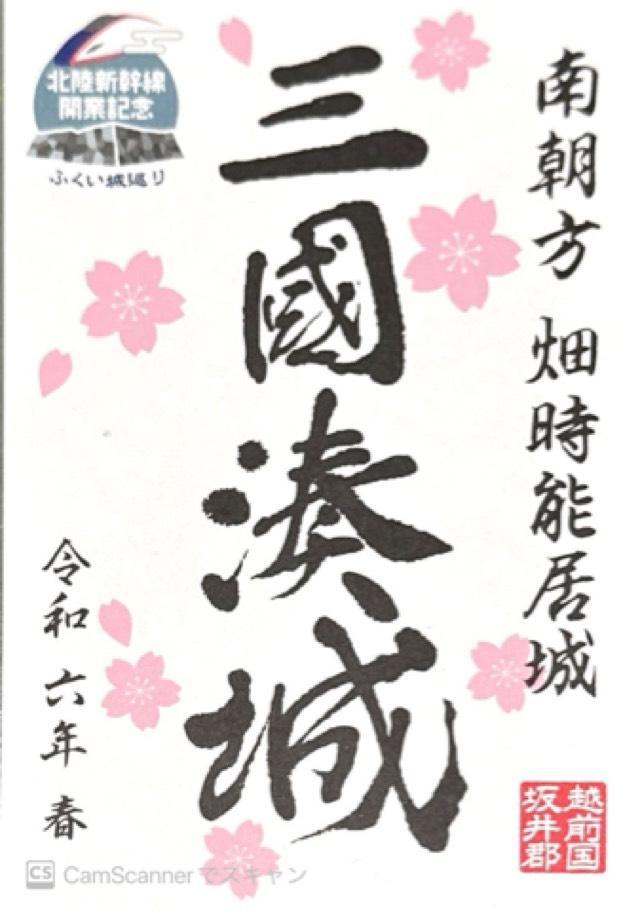 南朝方 畑時能居城
三國湊城
令和 六年 春
北陸新幹線
開業記念
ふくい城巡り
越前国
坂井郡
CS CamScannerでスキャン